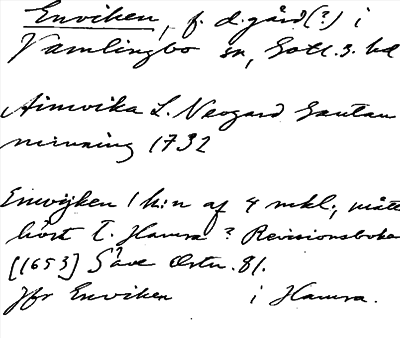 Enviken, f. d. gård(?) i
Vamlingbo sn, Gotl. s. hd
Aimvika L. Neogard Gautau
minning 1732
Enwijken 1 h:n af 4 mkl; måtte
hört t. Hamra? Revisionsboken
[1653] Säve Östn. 81.
Jfr Enviken i Hamra.